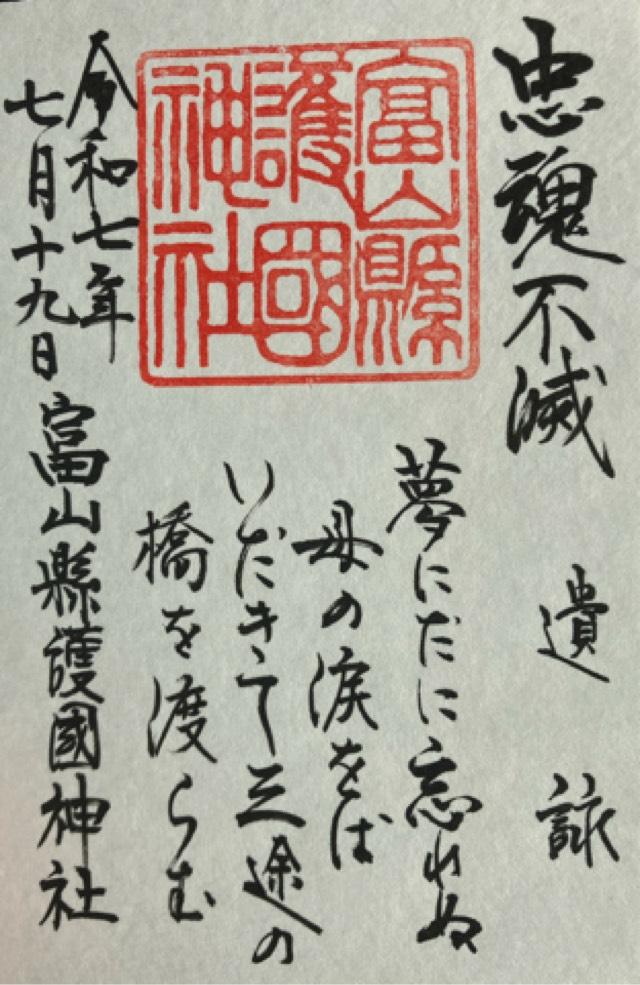 忠魂不滅
遺詠
夢にだに忘れぬ
母の涙をば
いだきて三途の
橋を渡らむ
富山縣
護國
神社
令和七年
七月十九日
富山縣護國神社